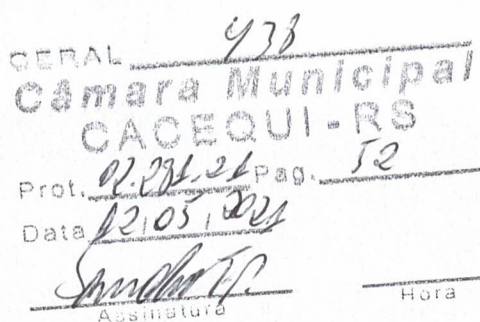 GERAL 438
Câmara Municipal
CACEQUI - RS
Prot. 02.281.21 Pag. 52
Data 12,05,2021
Assinatura Hora